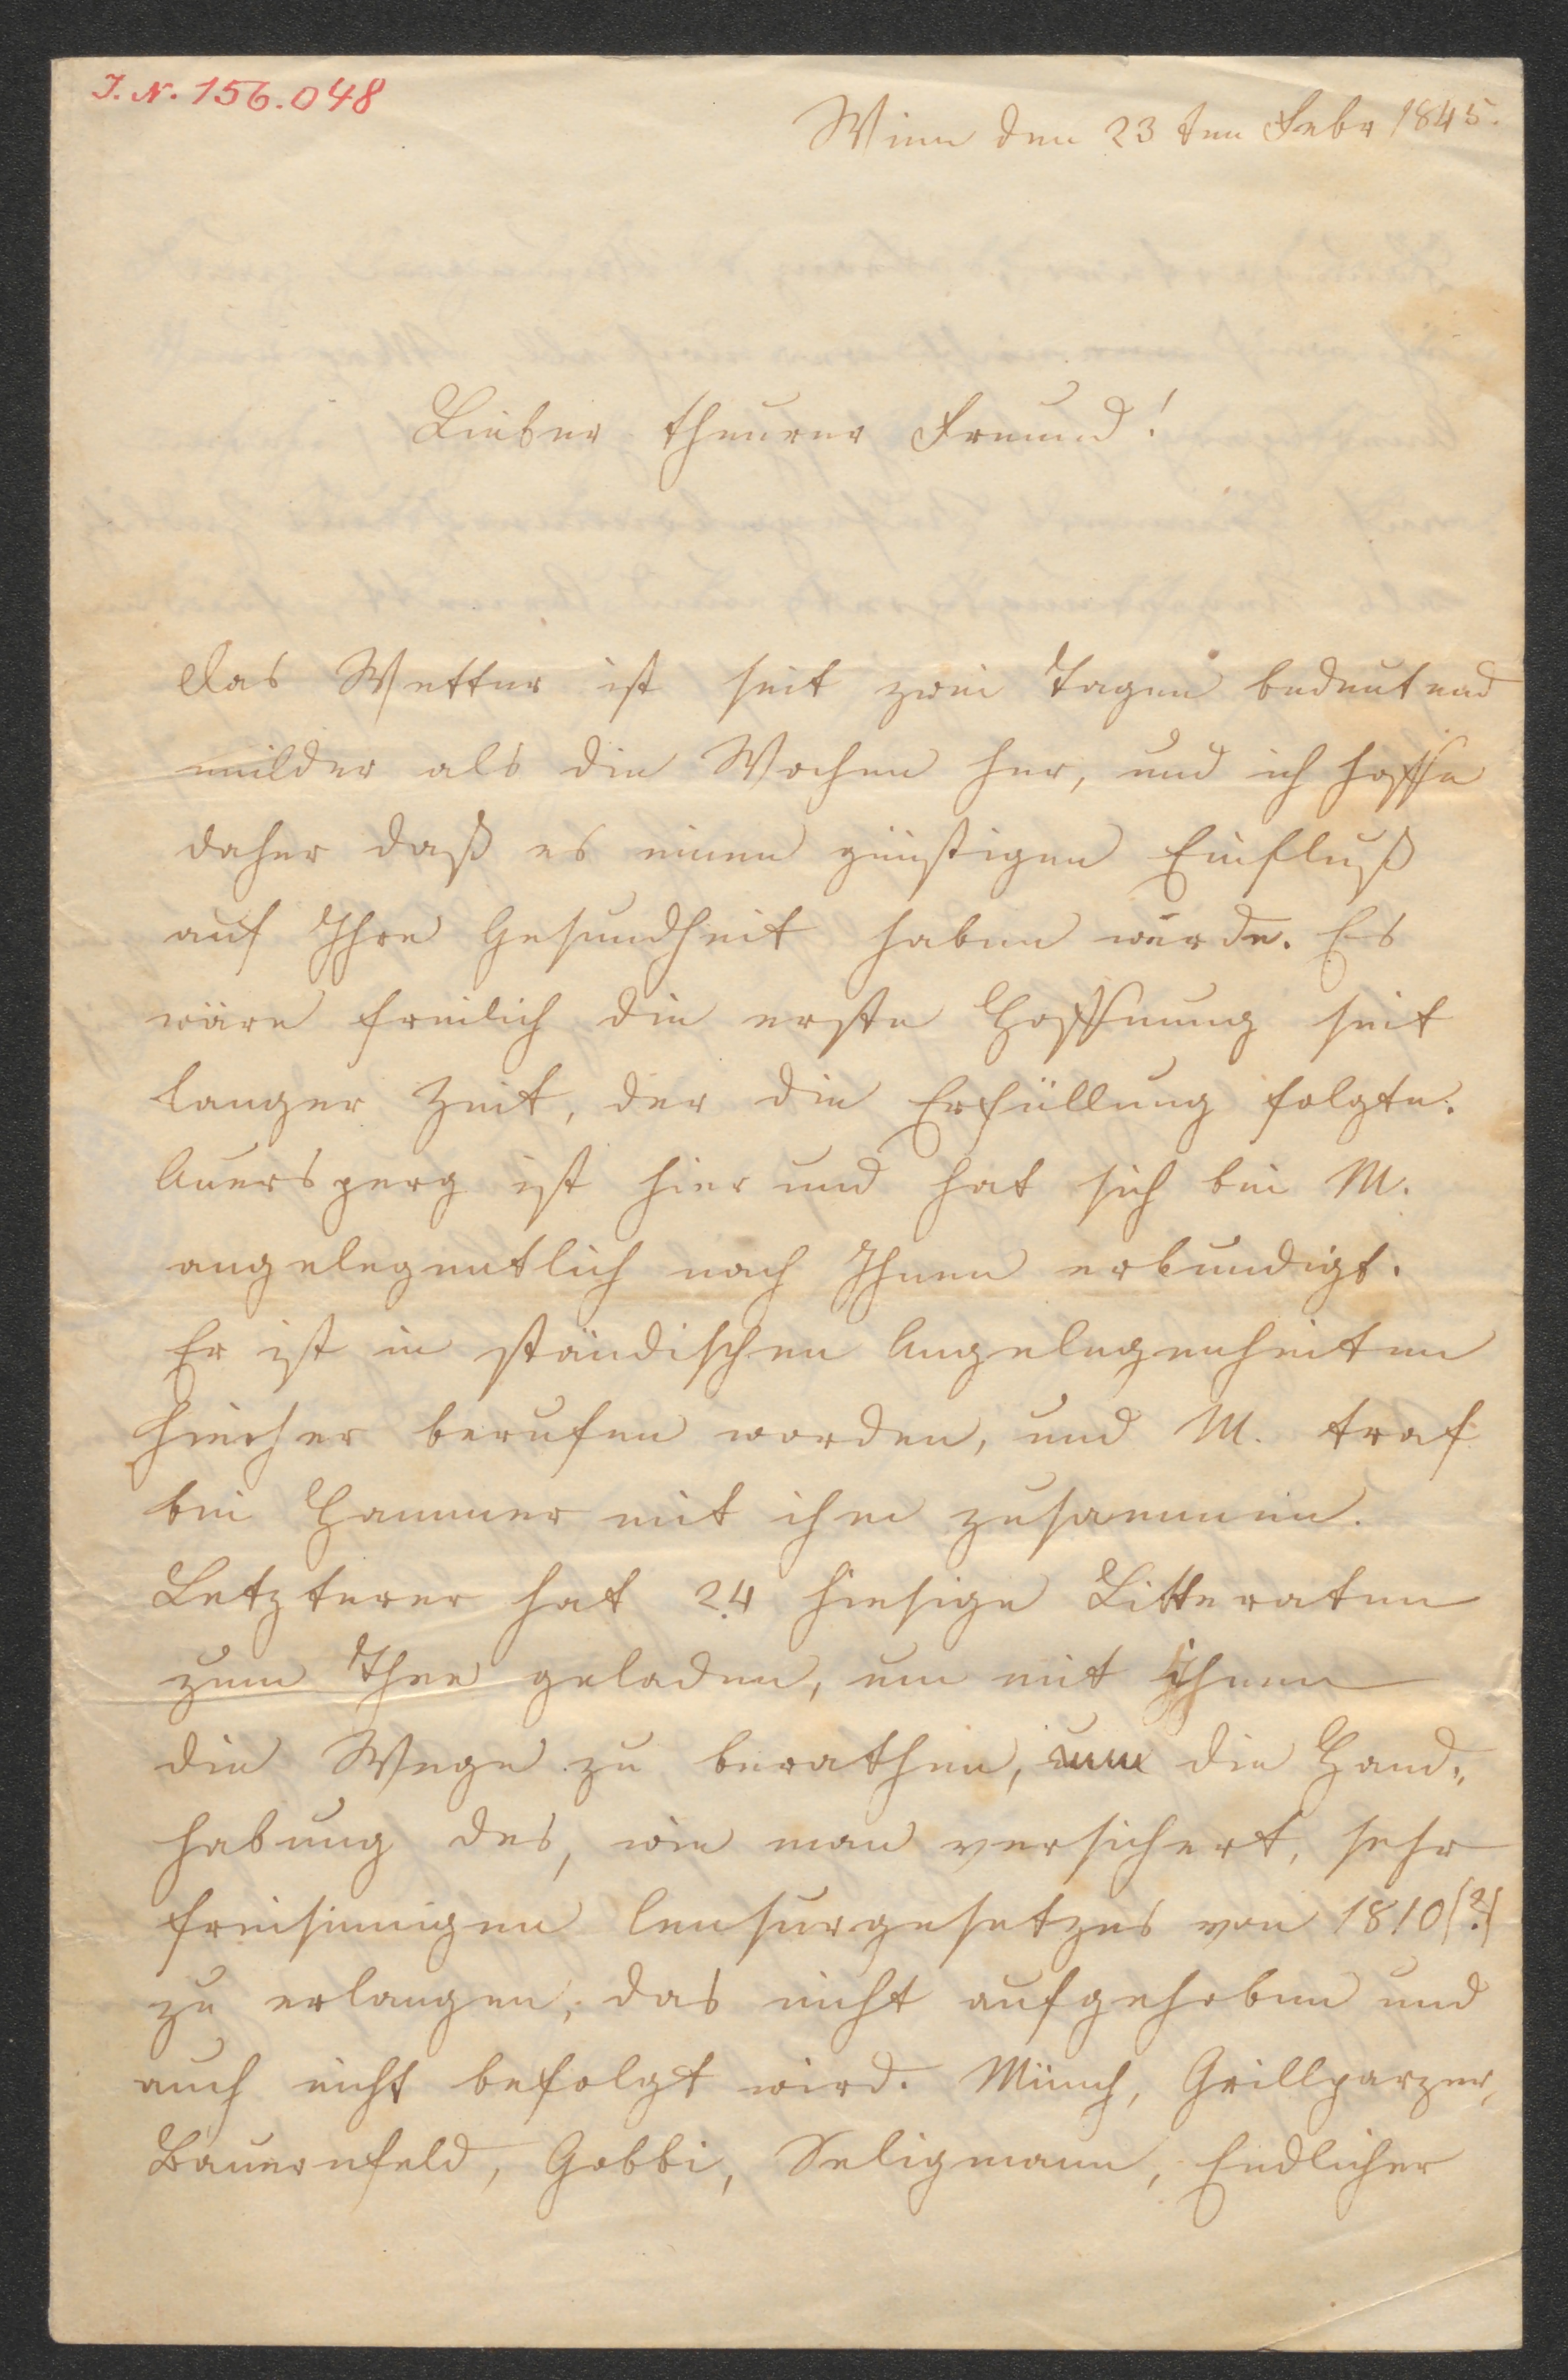 I. N. 156.048
Wien den 23ten Febr 1845.
Lieber theurer Freund!
Das Wetter ist seit zwei Tagen bedeutend
milder als die Wochen her, und ich hoffe
daher daß es einen günstigen Einfluß
auf Ihre Gesundheit haben würde. Es
wäre freilich die erste Hoffnung seit
langer Zeit, der die Erfüllung folgte.
Auersperg ist hier und hat sich bei M.
angelegentlich nach Ihnen erkundigt.
Er ist in ständischen Angelegenheiten
hieher berufen worden, und M. traf
bei Hammer mit ihm zusammen.
Letzterer hat 24 hiesige Litteraten
zum Thee geladen, um mit ihnen
die Wege zu berathen, um die Hand„
habung des, wie man versichert, sehr
freisinnigen Censurgesetzes von 1810(?)
zu erlangen, das nicht aufgehoben und
auch nicht befolgt wird. Münch, Grillparzer,
Bauernfeld, Gobbi, Seligmann, Endlicher